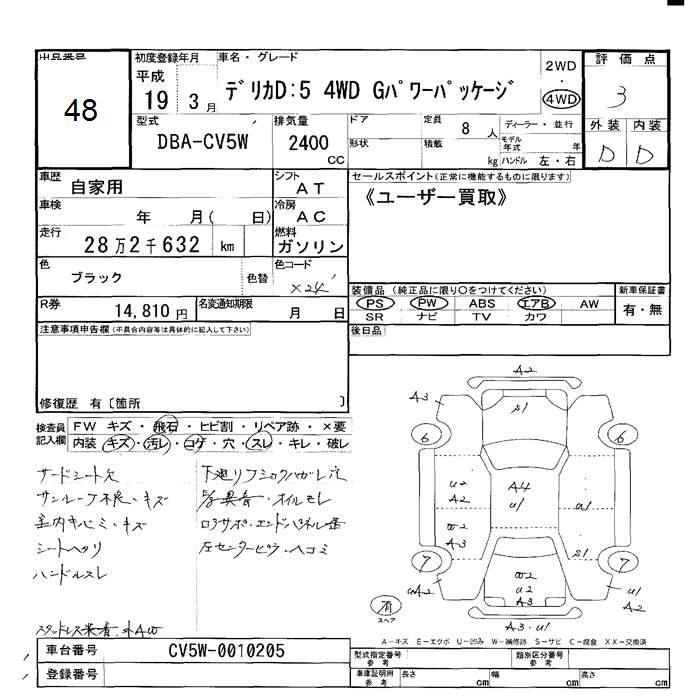 出品番号
48
初度登録年月
平成
19 3月
車名・グレード
デリカD:5 4WD Gパワーパッケージ
2WD
・
4WD
評価点
3
外装 内装
D D
型式
DBA-CV5W
排気量
2400
CC
ドア
形状
定員 8人
積載 kg
ディーラー・並行
モデル年式 年
ハンドル 左・右
車歴
自家用
シフト
AT
車検
年 月( 日)
冷房
AC
走行
28万2千632 km
燃料
ガソリン
色
ブラック
色替
色コード
×24
R券
14,810円
名変通知期限
月 日
セールスポイント(正常に機能するものに限ります)
《ユーザー買取》
装備品 (純正品に限り○をつけてください)
PS PW ABS エアB AW
SR ナビ TV カワ
新車保証書
有・無
後日品
注意事項申告欄(不具合内容等は具体的に記入して下さい)
修復歴 有〔箇所 〕
検査員
記入欄
FW キズ・飛石・ヒビ割・リペア跡・×要
内装 キズ・汚レ・コゲ・穴・スレ・キレ・破レ
サードシート欠
サンルーフ不良・キズ
室内キバミ・キズ
シートヘタリ
ハンドルスレ
オイルモレ
左センターピラーヘコミ
A2
A3
S1
6
6
U2
A2
A4
U1
U1
W2
A3
S1
7
7
W2
U2
A3
A2
U1
A2
A3・U1
有
スペア
A-キズ E-エクボ U-凹み W-補修跡 S-サビ C-腐食 XX-交換済
車台番号
CV5W-0010205
登録番号
型式指定番号
参考
類別区分番号
参考
車庫証明用
参考
長さ cm 幅 cm 高さ cm